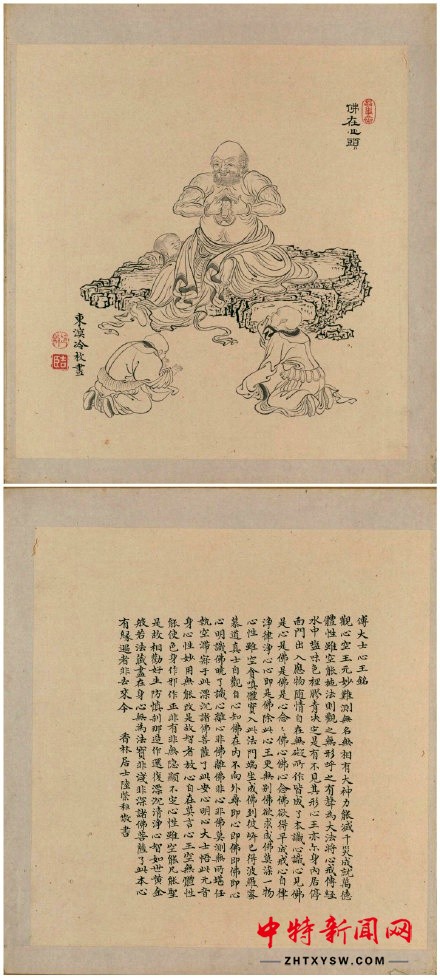 佛在心頭
東濱冷枚畫
傅大士心王銘
觀心空王元妙難測無名無相有大神力能滅千災成就萬德
體性雖空能施法則觀之無形呼之有聲為大法將心戒傳經
水中塩味色裡膠青決定是有不見其形心王亦尒身內居停
面門出入應物隨情自在無礙所作皆成了本識心識心見佛
是心是佛是佛是心念〻佛心佛心念佛欲得早成戒心自律
淨律淨心心即是佛除此心王更無別佛欲求成佛莫染一物
心性雖空貪嗔體實入此法門端坐成佛到彼岸已得波羅蜜
慕道真士自觀自心知佛在內不向外尋即心即佛即佛即心
心明識佛曉了識心離心非佛離佛非心非佛莫測無所堪任
執空滯寂於此漂沉諸佛菩薩了此安心明心大士悟此元音
身心性妙用無能改是故智者放心自在莫言心王空無體性
能使色身作邪作正非有非無隱顯不定心性雖空能凡能聖
是故相勸好生防慎剎那造作還復漂沉清淨心智如世黃金
般若法藏盡在身心無為法寶非淺非深諸佛菩薩了此本心
有緣遇者非去來今 香林居士陸敬書
中特新闻网
ZHTXYSW.COM